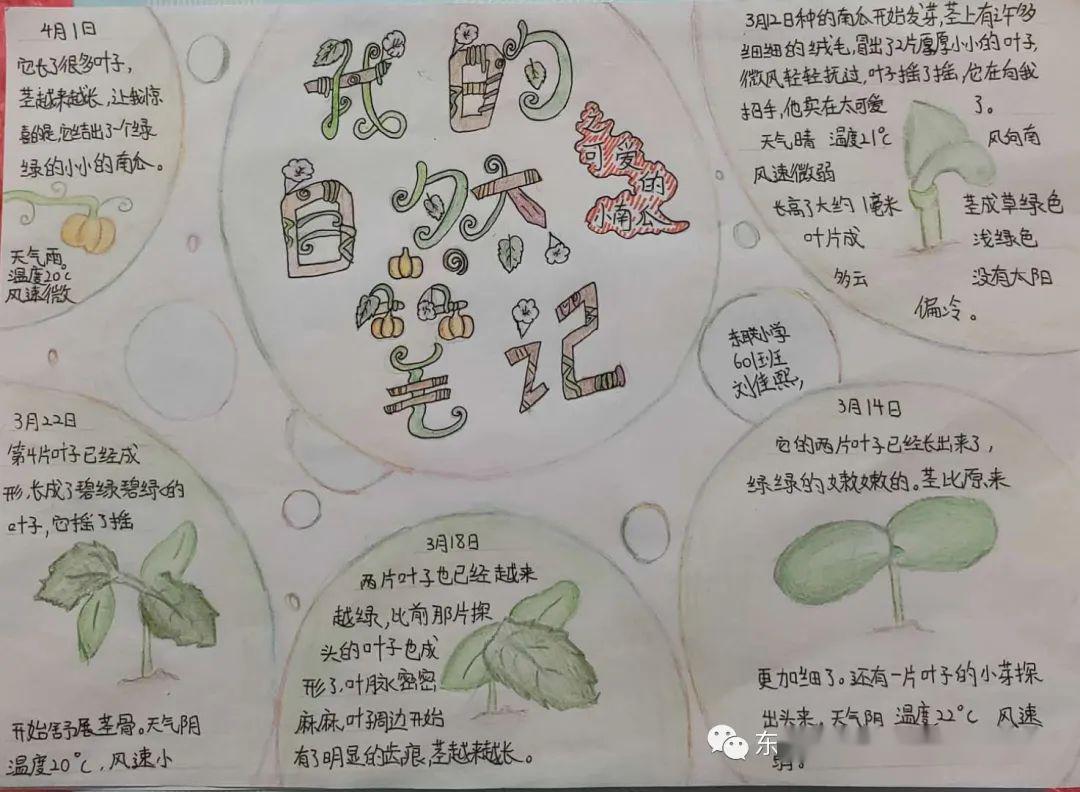 我的
自然
笔记
之
可爱
的
小南瓜
东联小学
601班
刘佳熙,
3月12日种的南瓜开始发芽,茎上有许多
细细的绒毛,冒出了2片厚厚小小的叶子,
微风轻轻抚过,叶子摇了摇,它在向我
招手,他实在太可爱了。
天气晴 温度21°C 风向南
风速微弱
长高了大约1毫米 茎成草绿色
叶片成 浅绿色
多云 没有太阳
偏冷。
3月14日
它的两片叶子已经长出来了,
绿绿的嫩嫩的。茎比原来
更加细了。还有一片叶子的小芽探
出头来,天气阴 温度22°C 风速
弱。
3月18日
两片叶子也已经越来
越绿,比前那片探
头的叶子也成
形了,叶脉密密
麻麻,叶子周边开始
有了明显的齿痕,茎越来越长。
3月22日
第4片叶子已经成
形,长成了碧绿碧绿的
叶子,它摇了摇
开始舒展茎骨。天气阴
温度20°C,风速小
4月1日
它长了很多叶子,
茎越来越长,让我惊
喜的是,它结出了一个绿
绿的小小的南瓜。
天气雨。
温度20°C
风速微
东